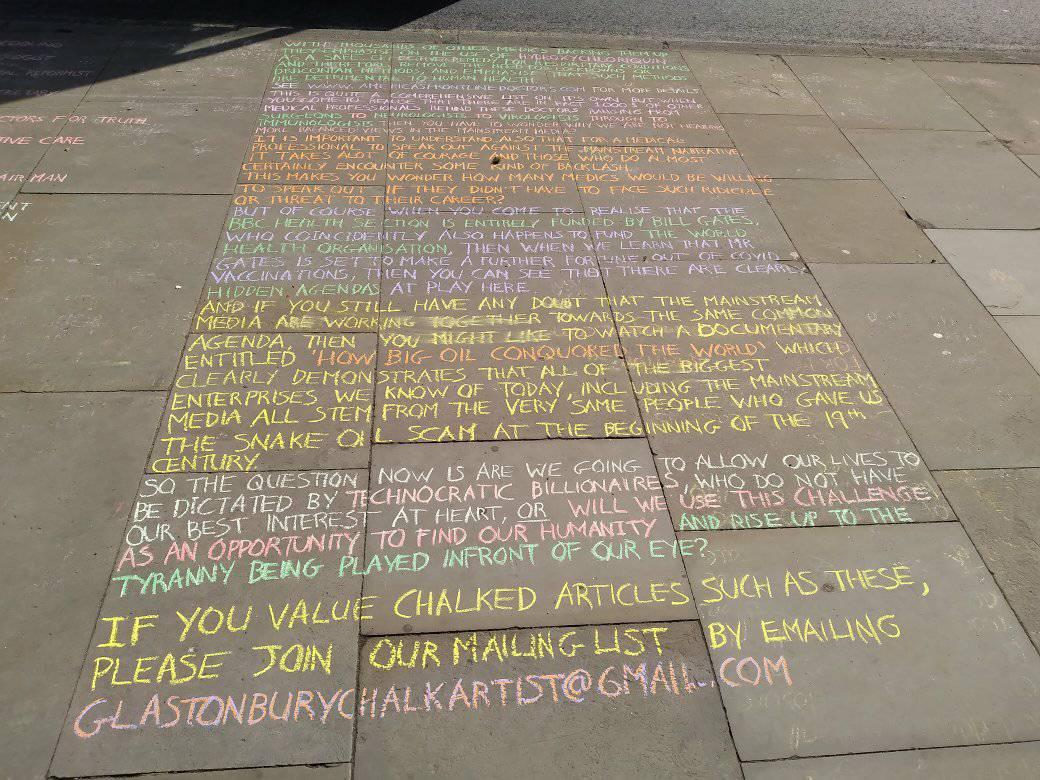 CTORS FOR TRUTH
TIVE CARE
AIRMAN
ENT
N
WITH THOUSANDS OF OTHER MEDICS BACKING THEM UP
THEY EMPHASISE ON THE USE OF HYDROXYCHLORIQUIN
AS A SAFE EFFECTIVE REMEDY FOR
AND THEREFORE REMOVE THE
DRACONIAN METHODS, AND EMPHASISE THAT SUCH METHODS
ARE DETRIMENTAL TO HUMAN HEALTH
SEE WWW.AMERICASFRONTLINEDOCTORS.COM FOR MORE DETAILS
THIS IS QUITE COMPREHENSIVE LETTER ON IT'S OWN BUT WHEN
YOU COME TO REALISE THAT THERE ARE IN FACT 3,000'S OF OTHER
MEDICAL PROFESSIONALS BEHIND THESE DOCTORS RANGING FROM
SURGEONS TO NEUROLOGISTS TO VIROLOGISTS THROUGH TO
IMMUNOLOGISTS THEN YOU HAVE TO WONDER WHY WE ARE NOT HEARING
MORE BALANCED VIEWS IN THE MAINSTREAM MEDIA?
IT IS IMPORTANT TO UNDERSTAND ALSO THAT FOR A MEDICAL
PROFESSIONAL TO SPEAK OUT AGAINST THE MAINSTREAM NARRATIVE
IT TAKES ALOT OF COURAGE AND THOSE WHO DO A MOST
CERTAINLY ENCOUNTER SOME KIND OF BACKLASH
THIS MAKES YOU WONDER HOW MANY MEDICS WOULD BE WILLING
TO SPEAK OUT IF THEY DIDN'T HAVE TO FACE SUCH RIDICULE
OR THREAT TO THEIR CAREER?
BUT OF COURSE WHEN YOU COME TO REALISE THAT THE
BBC HEALTH SECTION IS ENTIRELY FUNDED BY BILL GATES,
WHO COINCIDENTLY ALSO HAPPENS TO FUND THE WORLD
HEALTH ORGANISATION, THEN WHEN WE LEARN THAT MR
GATES IS SET TO MAKE A FURTHER FORTUNE OUT OF COVID
VACCINATIONS, THEN YOU CAN SEE THAT THERE ARE CLEARLY
HIDDEN AGENDAS AT PLAY HERE.
AND IF YOU STILL HAVE ANY DOUBT THAT THE MAINSTREAM
MEDIA ARE WORKING TOGETHER TOWARDS THE SAME COMMON
AGENDA, THEN YOU MIGHT LIKE TO WATCH A DOCUMENTARY
ENTITLED 'HOW BIG OIL CONQUORED THE WORLD' WHICH
CLEARLY DEMONSTRATES THAT ALL OF THE BIGGEST
ENTERPRISES WE KNOW OF TODAY, INCLUDING THE MAINSTREAM
MEDIA ALL STEM FROM THE VERY SAME PEOPLE WHO GAVE US
THE SNAKE OIL SCAM AT THE BEGINNING OF THE 19th
CENTURY.
SO THE QUESTION NOW IS ARE WE GOING TO ALLOW OUR LIVES TO
BE DICTATED BY TECHNOCRATIC BILLIONAIRES, WHO DO NOT HAVE
OUR BEST INTEREST AT HEART, OR WILL WE USE THIS CHALLENGE
AS AN OPPORTUNITY TO FIND OUR HUMANITY AND RISE UP TO THE
TYRANNY BEING PLAYED INFRONT OF OUR EYE?
IF YOU VALUE CHALKED ARTICLES SUCH AS THESE,
PLEASE JOIN OUR MAILING LIST BY EMAILING
GLASTONBURYCHALKARTIST@GMAIL.COM